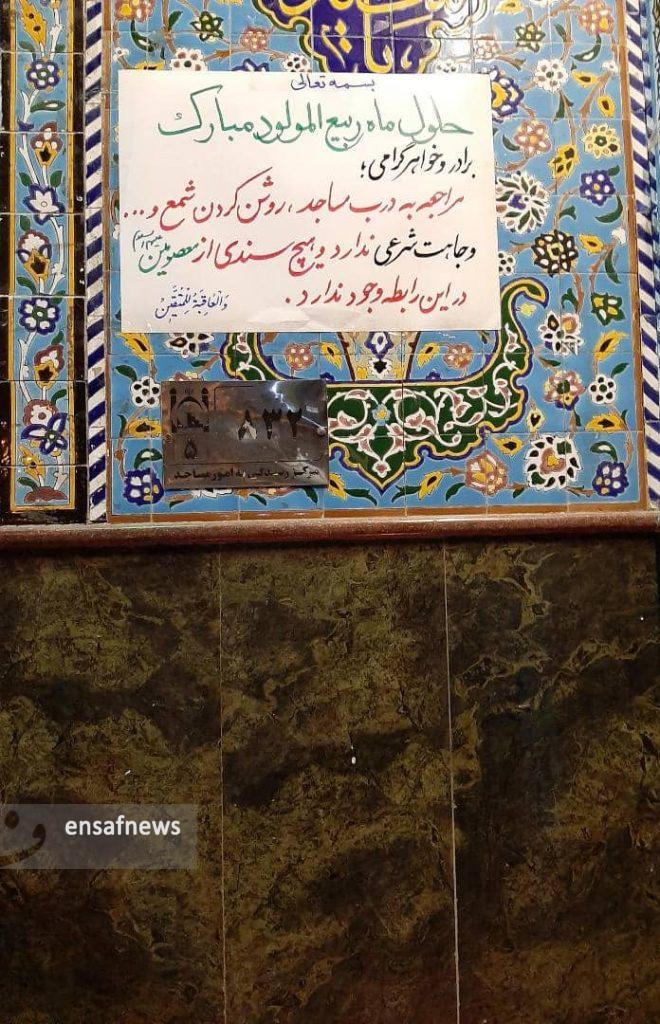 بسمه تعالی
حلول ماه ربیع المولود مبارک
برادر و خواهر گرامی؛
مراجعه به درب مساجد، روشن کردن شمع و ...
وجاهت شرعی ندارد و هیچ سندی از معصومین علیهم السلام
در این رابطه وجود ندارد.
والعاقبة للمتقین
۸۳۲
۵
مرکز رسیدگی به امور مساجد
ensafnews